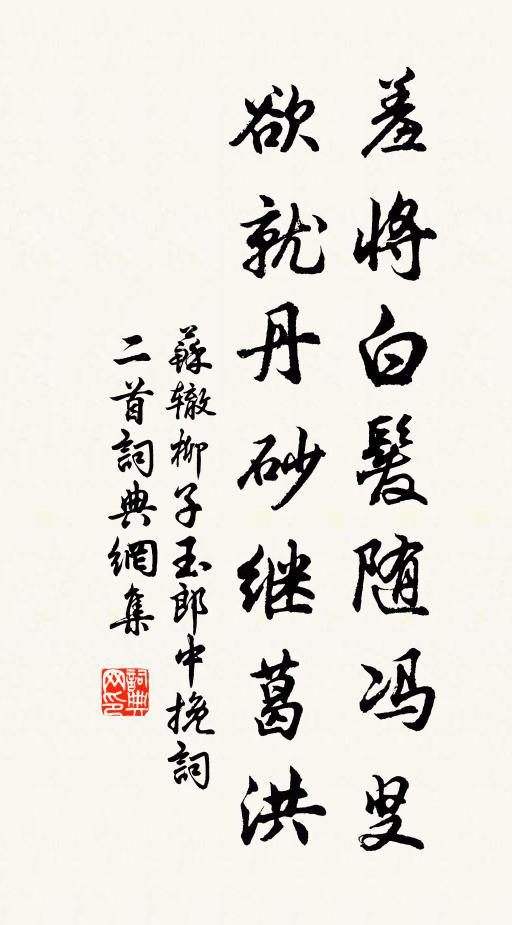 羞将白髮随冯叟
欲就丹砂继葛洪
蘇辙柳子玉郎中挽詞
二首詞典網集
詞典网印